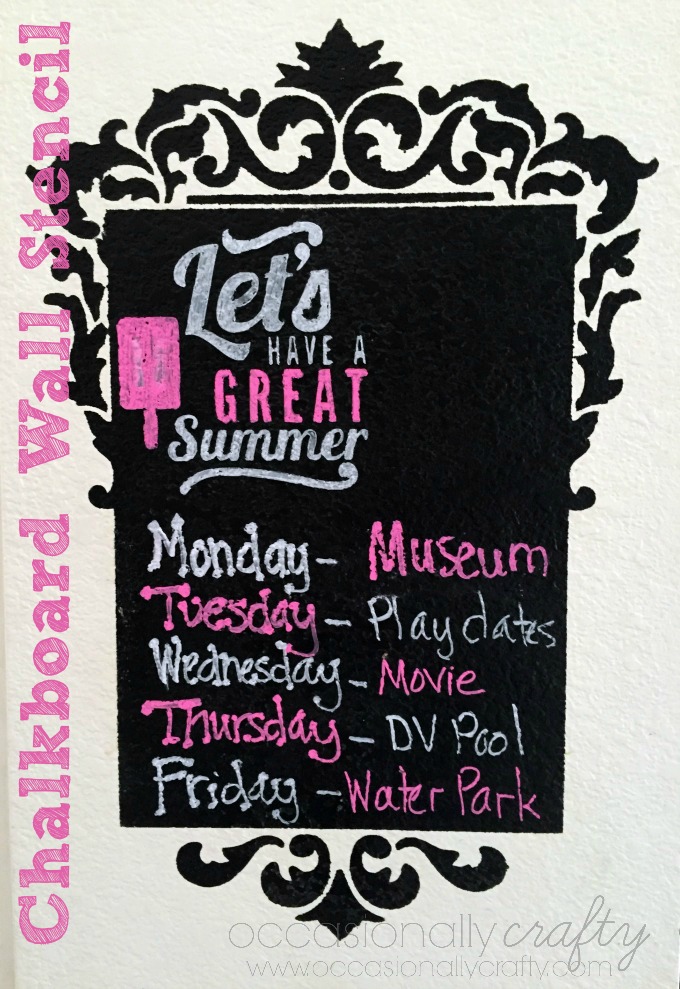 Chalkboard Wall Stencil
Let's
HAVE A
GREAT
Summer
Monday - Museum
Tuesday - Playdates
Wednesday - Movie
Thursday - DV Pool
Friday - Water Park
occasionallycrafty
www.occasionallycrafty.com